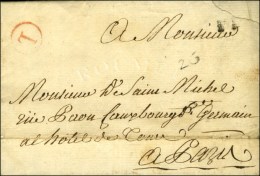 A Monsieur
25
Monsieur De Saint Michel
rue Paon fauxbourg St Germain
a l hotel de Tours
A Paris